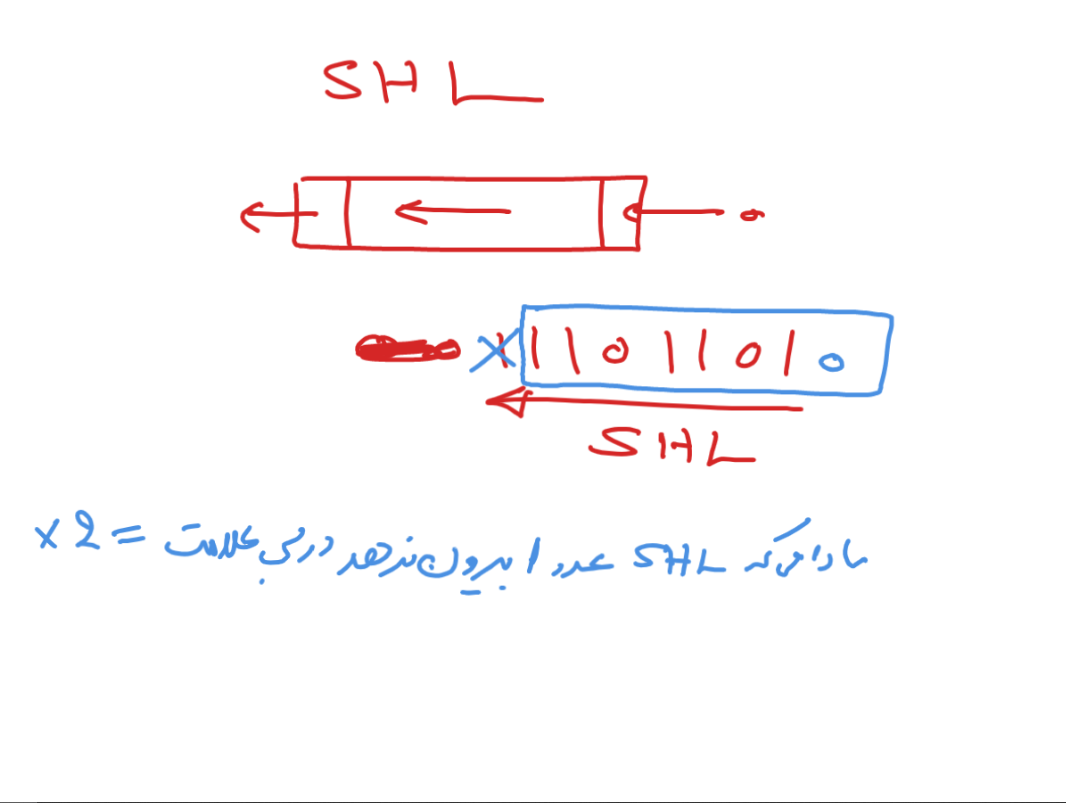 SHL
0
1 1 1 0 1 1 0 1 0
SHL
مادامی که SHL عدد 1 بیرون ندهد در بی علامت = x 2